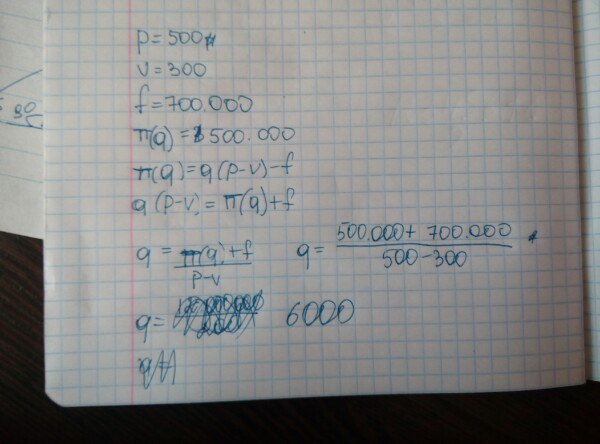 p = 500
v = 300
f = 700.000
π(q) = 500.000
π(q) = q(p-v)-f
q(p-v) = π(q)+f
q = π(q)+f / p-v    q = 500.000+ 700.000 / 500-300
q = 6000